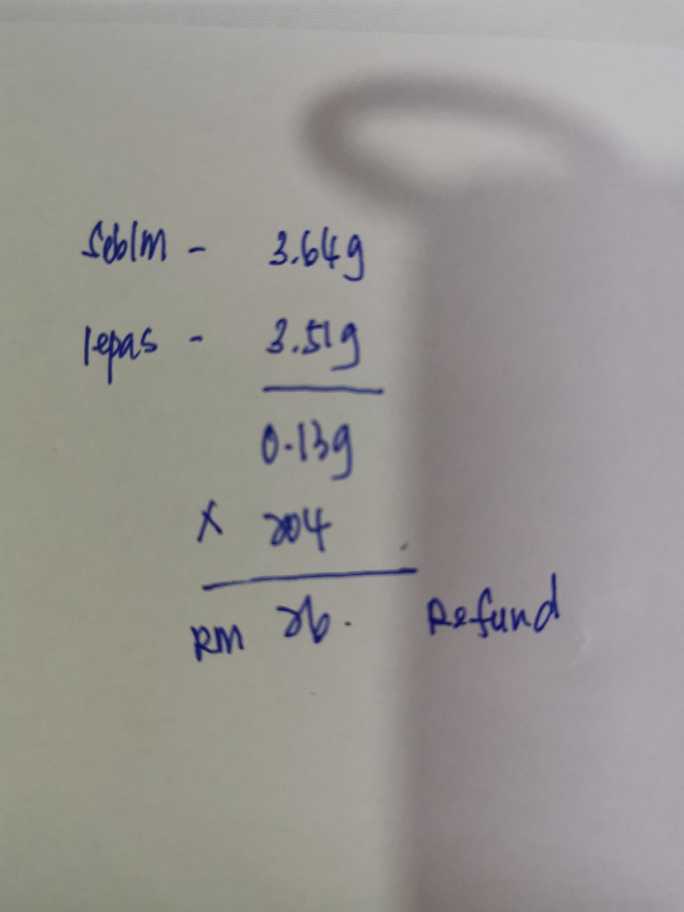 Seblm - 3.64g
lepas - 3.51g
0.13g
X 204
RM 26. Refund